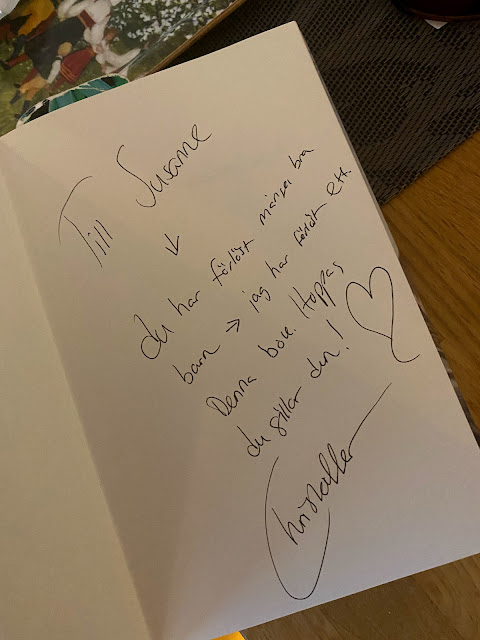 Till Susanne
↓
du har förlöst många bra
barn → jag har förlöst ett.
Denna bok. Hoppas
du gillar den! ♡
Christoffer